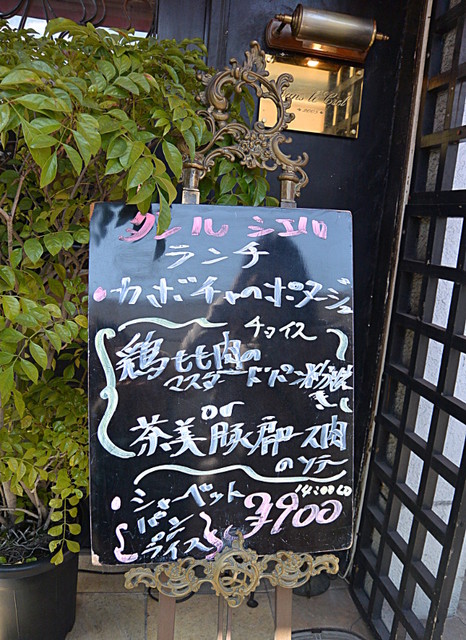 ダン ル シエル
ランチ
・カボチャのポタージュ
チョイス
鶏もも肉の
マスタードパン粉焼き
or
茶美豚肩ロース肉
のソテー
・シャーベット
パン
ライス
14:00 LO
¥900